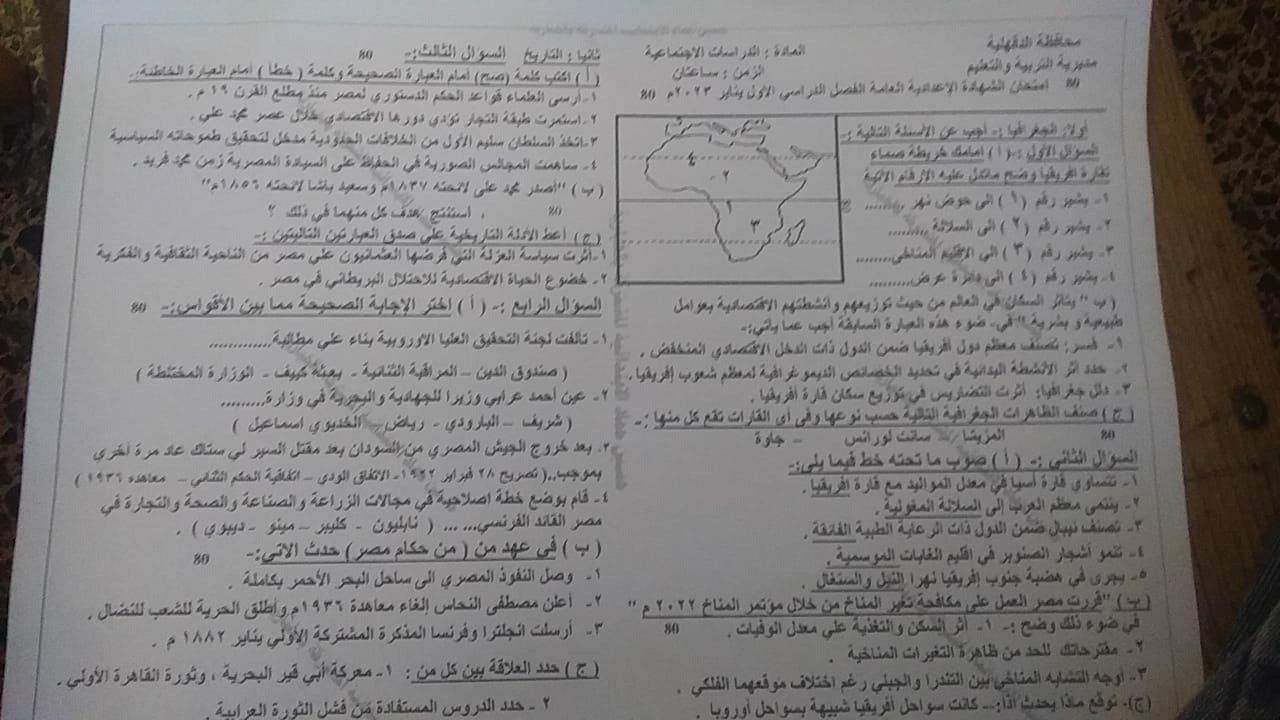 محافظة الدقهلية
مديرية التربية والتعليم
المادة : الدراسات الاجتماعية
الزمن : ساعتان
امتحان الشهادة الإعدادية العامة الفصل الدراسي الأول يناير ٢٠٢٣م
أولا: الجغرافيا :- أجب عن الأسئلة التالية :-
السؤال الأول :- ( أ ) امامك خريطة صماء
لقارة افريقيا وضح ماتدل عليه الارقام الاتية
١- يشير رقم ( ١ ) الى حوض نهر ........
٢- يشير رقم ( ٢ ) الى السلالة ........
٣- يشير رقم ( ٣ ) الى الإقليم المناخى........
٤- يشير رقم ( ٤ ) الى دائرة عرض........
٤
٢
١
٣
( ب " يتأثر السكان في العالم من حيث توزيعهم وانشطتهم الاقتصادية بعوامل
طبيعية و بشرية " في- ضوء هذه العبارة السابقة أجب عما يأتي:-
١- فسر: تصنف معظم دول أفريقيا ضمن الدول ذات الدخل الاقتصادي المنخفض .
٢- حدد اثر الأنشطة البدائية في تحديد الخصائص الديموغرافية لمعظم شعوب إفريقيا .
٣- دلل جغرافيا: أثرت التضاريس في توزيع سكان قارة أفريقيا .
( ج ) صنف الظاهرات الجغرافية التالية حسب نوعها وفى أى القارات تقع كل منها :-
المزيتا - سانت لورانس - جاوة 80
السؤال الثاني :- ( أ ) صوب ما تحته خط فيما يلى:-
١- تتساوي قارة أسيا في معدل المواليد مع قارة افريقيا .
٢- ينتمى معظم العرب إلى السلالة المغولية .
٣- تصنف نيبال ضمن الدول ذات الرعاية الطبية الفائقة .
٤- تنمو أشجار الصنوبر في اقليم الغابات الموسمية .
٥- يجرى في هضبة جنوب إفريقيا نهرا النيل والسنغال .
( ب ) "قررت مصر العمل على مكافحة تغير المناخ من خلال مؤتمر المناخ ٢٠٢٢ م "
في ضوء ذلك وضح :- ١- أثر السكن والتغذية على معدل الوفيات . 80
٢- مقترحاتك للحد من ظاهرة التغيرات المناخية .
٣- اوجه التشابه المناخي بين التندرا والجبلي رغم اختلاف موقعهما الفلكي .
(ج)- توقع ماذا يحدث اذا:- كانت سواحل أفريقيا شبيهة بسواحل أوروبا .
ثانيا : التاريخ السؤال الثالث:- 80
( أ ) اكتب كلمة (صح) أمام العبارة الصحيحة وكلمة ( خطأ ) أمام العبارة الخاطئة:-
١-أرسى العلماء قواعد الحكم الدستوري لمصر منذ مطلع القرن ١٩ م .
٢-استمرت طبقة التجار تؤدي دورها الاقتصادي خلال عصر محمد علي .
٣-اتخذ السلطان سليم الأول من الخلافات الحدودية مدخل لتحقيق طموحاته السياسية
٤- ساهمت المجالس الصورية في الحفاظ على السيادة المصرية زمن محمد فريد .
( ب ) "أصدر محمد على لائحته ١٨٣٧م وسعيد باشا لائحته ١٨٥٦م"
. أستنتج هدف كل منهما في ذلك ؟ 80
( ج ) أعط الأدلة التاريخية على صدق العبارتين التاليتين :-
١-أثرت سياسة العزلة التي فرضها العثمانيون على مصر من الناحية الثقافية والفكرية
٢- خضوع الحياة الاقتصادية للاحتلال البريطاني في مصر .
السؤال الرابع :- ( أ ) اختر الإجابة الصحيحة مما بين الأقواس:- 80
١- تألفت لجنة التحقيق العليا الأوروبية بناء علي مطالبة.............
( صندوق الدين – المراقبة الثنائية - بعثة كييف - الوزارة المختلطة )
٢- عين أحمد عرابي وزيرا للجهادية والبحرية في وزارة.........
( شريف – البارودي - رياض – الخديوي اسماعيل )
٣- بعد خروج الجيش المصري من السودان بعد مقتل السير لي ستاك عاد مرة أخري
بموجب..( تصريح ٢٨ فبراير ١٩٢٢- الاتفاق الودى – اتفاقية الحكم الثنائي – معاهده ١٩٣٦ )
٤- قام بوضع خطة اصلاحية في مجالات الزراعة والصناعة والصحة والتجارة في
مصر القائد الفرنسي... ... ( نابليون - كليبر – مينو - ديبوي ) .
( ب ) فى عهد من ( من حكام مصر ) حدث الاتي:- 80
١- وصل النفوذ المصري الى ساحل البحر الأحمر بكاملة .
٢- أعلن مصطفى النحاس إلغاء معاهدة ١٩٣٦م وأطلق الحرية للشعب للنضال .
٣- أرسلت انجلترا وفرنسا المذكرة المشتركة الأولي يناير ١٨٨٢ م .
( ج ) حدد العلاقة بين كل من : ١- معركة أبي قير البحرية ، وثورة القاهرة الأولي .
٢ - حدد الدروس المستفادة من فشل الثورة العرابية .